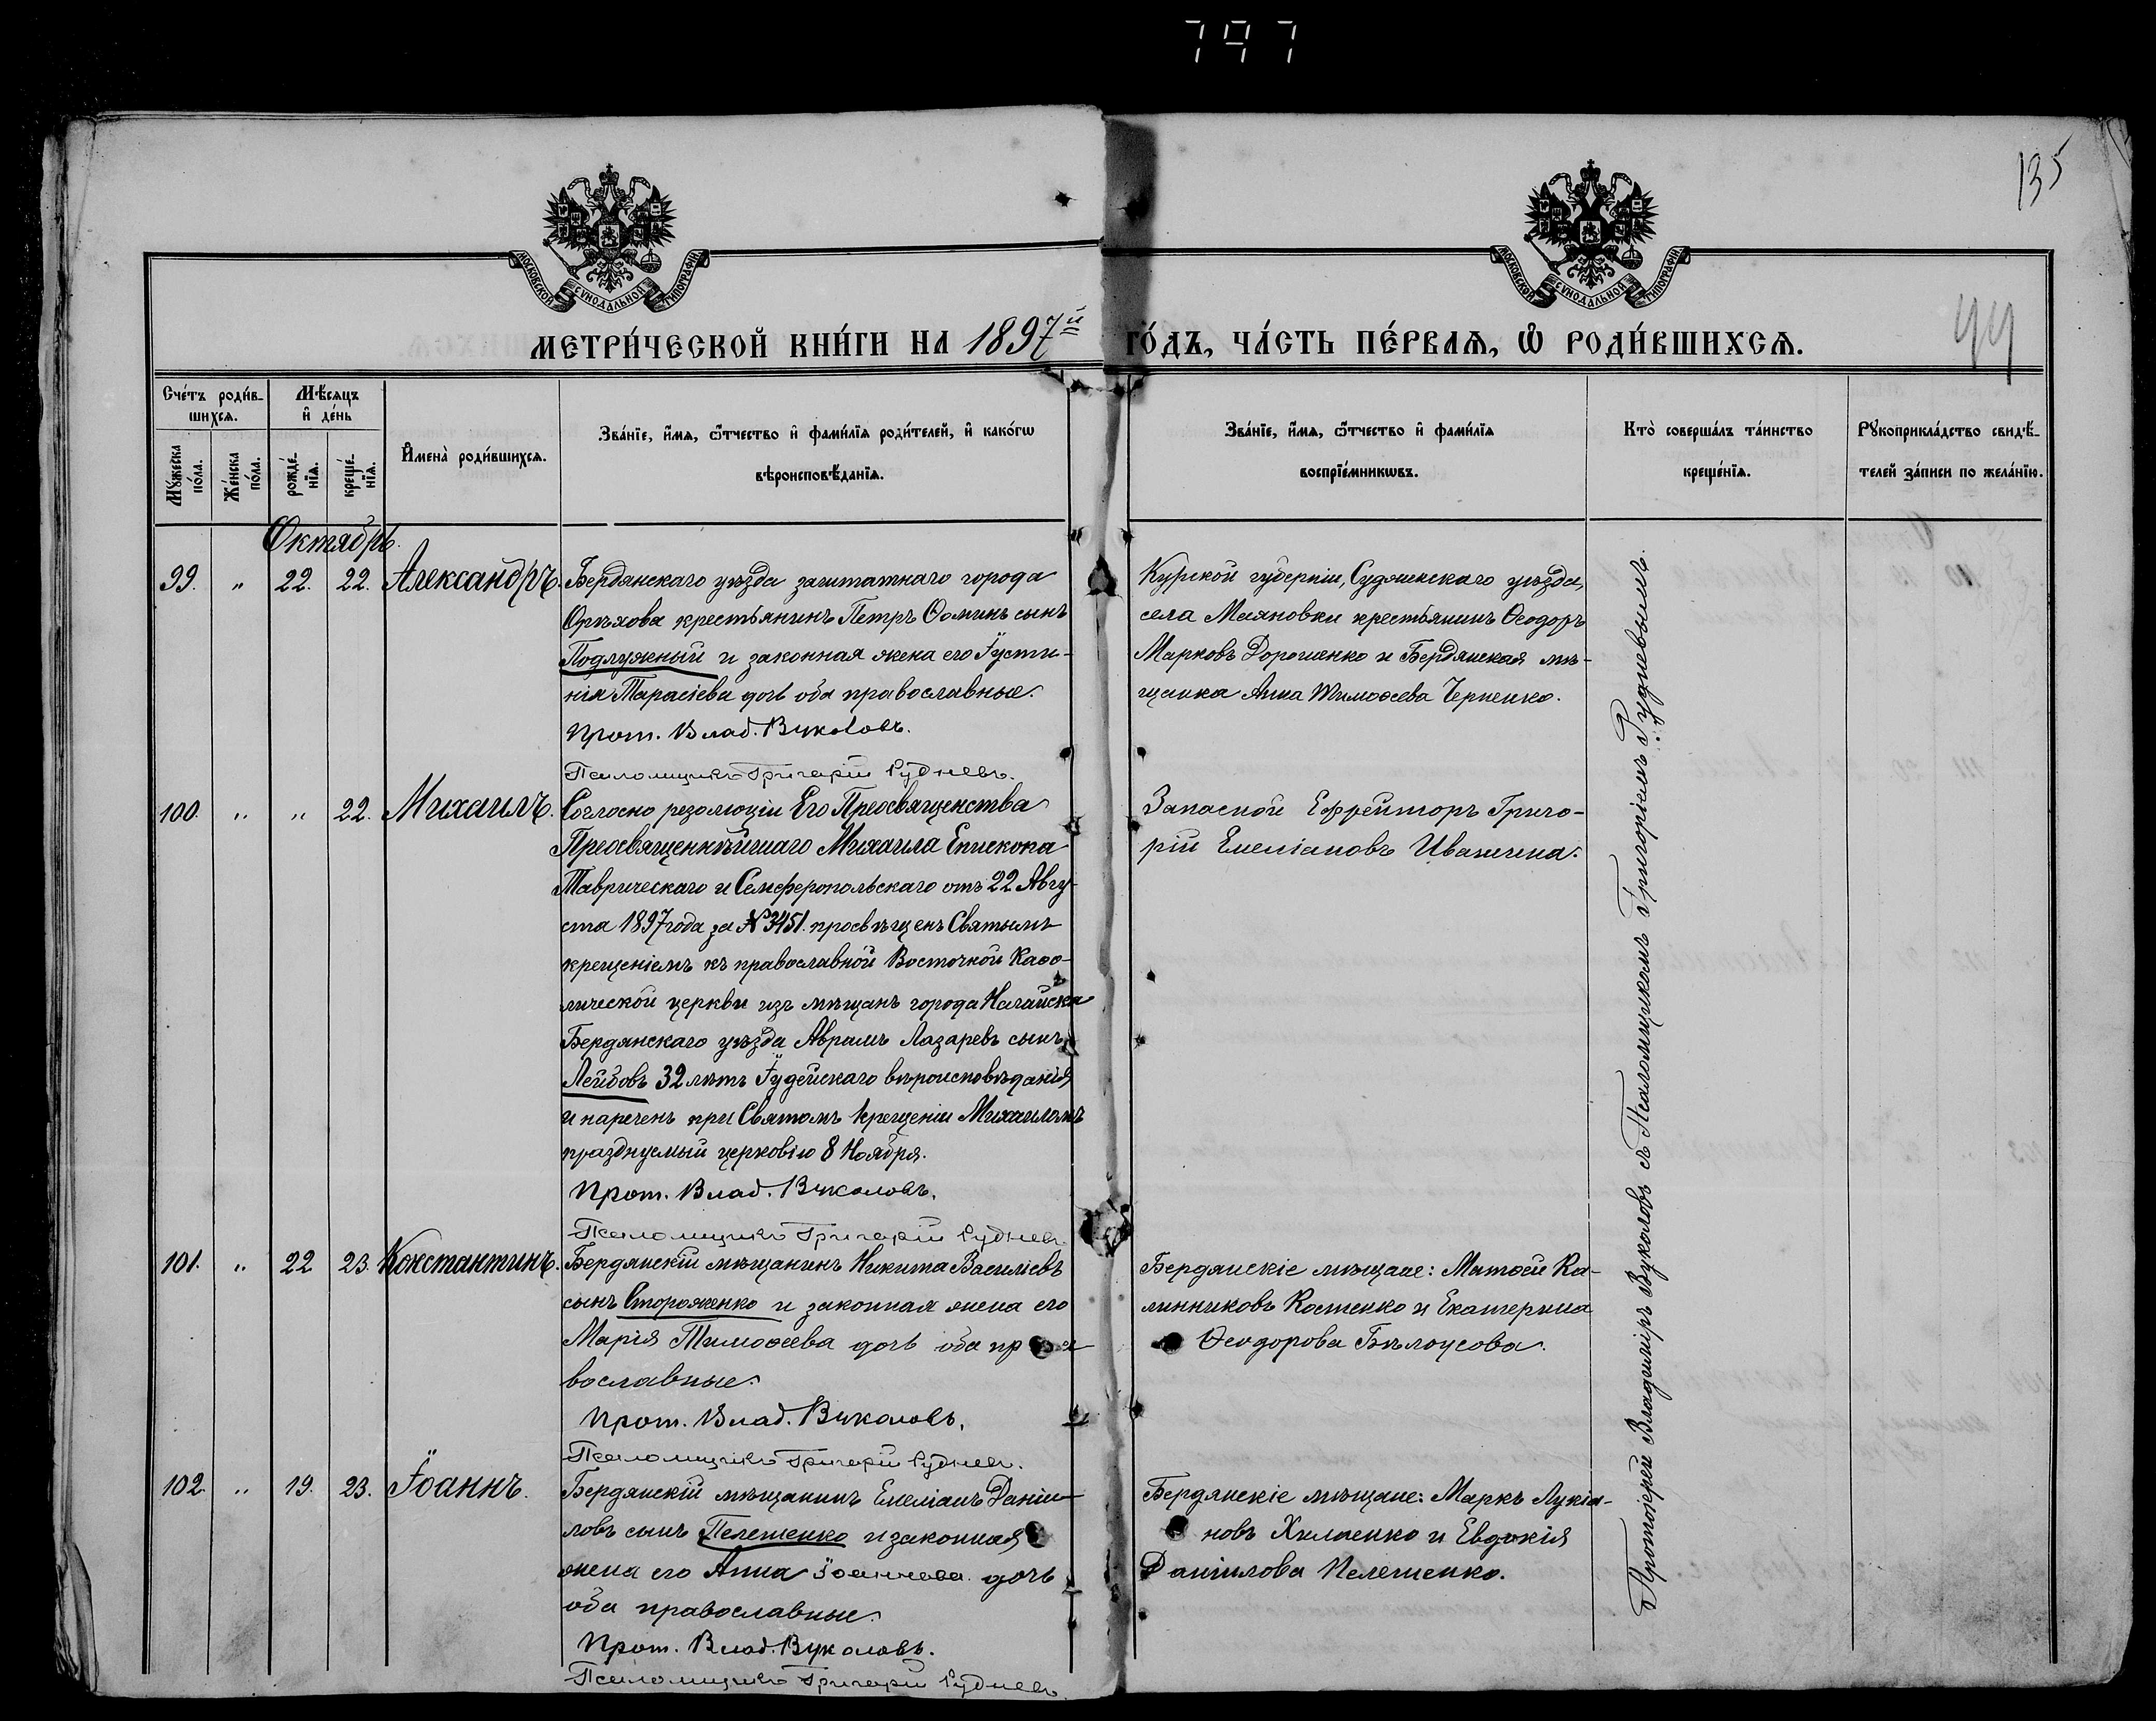 797
135
МОСКОВСКОЙ СУНОДАЛЬНОЙ ТИПОГРАФІИ
МОСКОВСКОЙ СУНОДАЛЬНОЙ ТИПОГРАФІИ
МЕТРИ́ЧЕСКОЙ КНИ́ГИ НА 1897й ГО́ДЪ, ЧА́СТЬ ПЕ́РВАѦ, Ѡ҆ РОДИ́ВШИХСѦ.
Сче́тъ роди́в-
шихсѧ.
Мꙋ́жеска по́ла.
Же́нска по́ла.
Мѣ́сѧцъ
и҆ де́нь
рожде́-
нїѧ.
креще́-
нїѧ.
И҆мена̀ роди́вшихсѧ.
Зва́нїе, и҆́мѧ, ѻ҆́тчество и҆ фами́лїѧ роди́телей, и҆ како́гѡ
вѣроисповѣ́данїѧ.
Зва́нїе, и҆́мѧ, ѻ҆́тчество и҆ фами́лїѧ
воспрїе́мникѡвъ.
Кто̀ соверша́лъ та́инство
креще́нїѧ.
Рꙋкоприкла́дство свидѣ́-
телей за́писи по жела́нїю.
Октябрь.
99. " 22. 22. Александръ.
Бердянскаго уѣзда заштатнаго города
Орѣхова крестьянинъ Петръ Ѳоминъ сынъ
Подлужный и законная жена его Іусти-
нія Тарасіева дочь оба православные.
Прот. Влад. Вуколовъ.
Псаломщикъ Григорій Рудневъ.
Курской губерніи, Суджанскаго уѣзда,
села Маяновки крестьянинъ Ѳеодоръ
Марковъ Дорошенко и Бердянская мѣ-
щанка Анна Тимоѳеева Черненко.
100. " " 22. Михаилъ.
Согласно резолюціи Его Преосвященства
Преосвященнѣйшаго Михаила Епископа
Таврическаго и Симферопольскаго отъ 22 Авгу-
ста 1897 года за № 3451. просвѣщенъ Святымъ
крещеніемъ къ православной Восточной Каѳо-
лической церкви изъ мѣщанъ города Ногайска
Бердянскаго уѣзда Аврамъ Лазаревъ сынъ
Лейбовъ 32 лѣтъ Іудейскаго вѣроисповѣданія
и нареченъ при Святомъ Крещеніи Михаиломъ
празднуемый церковію 8 Ноября.
Прот. Влад. Вуколовъ.
Псаломщикъ Григорій Рудневъ
Запасной Ефрейторъ Григо-
рій Емеліановъ
101. " 22 23. Константинъ.
Бердянскій мѣщанинъ Никита Василіевъ
сынъ Стороженко и законная жена его
Марія Тимоѳеева дочь оба пра-
вославные.
Прот. Влад. Вуколовъ.
Псаломщикъ Григорій Рудневъ.
Бердянскіе мѣщане: Матѳей Ка-
линниковъ Костенко и Екатерина
Ѳеодорова Бѣлоусова.
102. " 19. 23. Іоаннъ.
Бердянскій мѣщанинъ Емеліанъ Даніи-
ловъ сынъ Пелешенко и законная
жена его Анна Іоаннова дочь
оба православные.
Прот. Влад. Вуколовъ.
Псаломщикъ Григорій Рудневъ
Бердянскіе мѣщане: Маркъ Лукіа-
новъ и Евдокія
Даніилова Пелешенко.
Протоіерей Владиміръ Вуколовъ съ Псаломщикомъ Григоріемъ Рудневымъ.